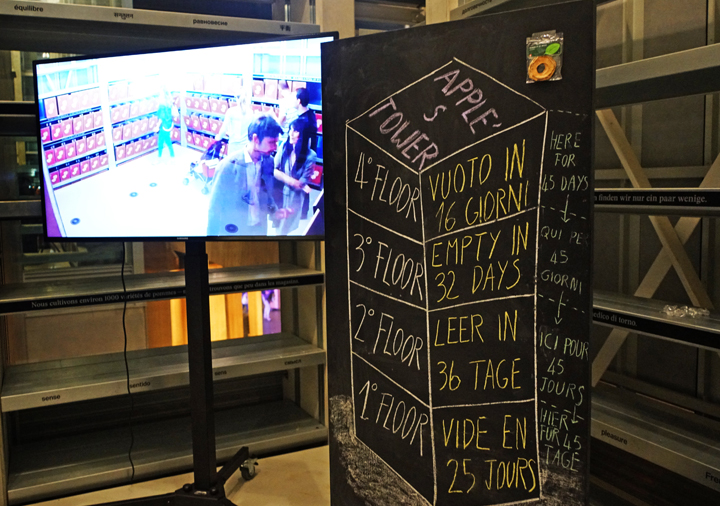 équilibre
равновесие
APPLE'
S
TOWER
4° FLOOR
VUOTO IN
16 GIORNI
3° FLOOR
EMPTY IN
32 DAYS
2° FLOOR
LEER IN
36 TAGE
1° FLOOR
VIDE EN
25 JOURS
HERE
FOR
45 DAYS
QUI PER
45
GIORNI
ICI POUR
45
JOURS
HIER
FÜR 45
TAGE
finden wir nur ein paar wenige.
medico di torno.
Nous cultivons environ 1000 variétés de pommes
sense
sentido
pleasure